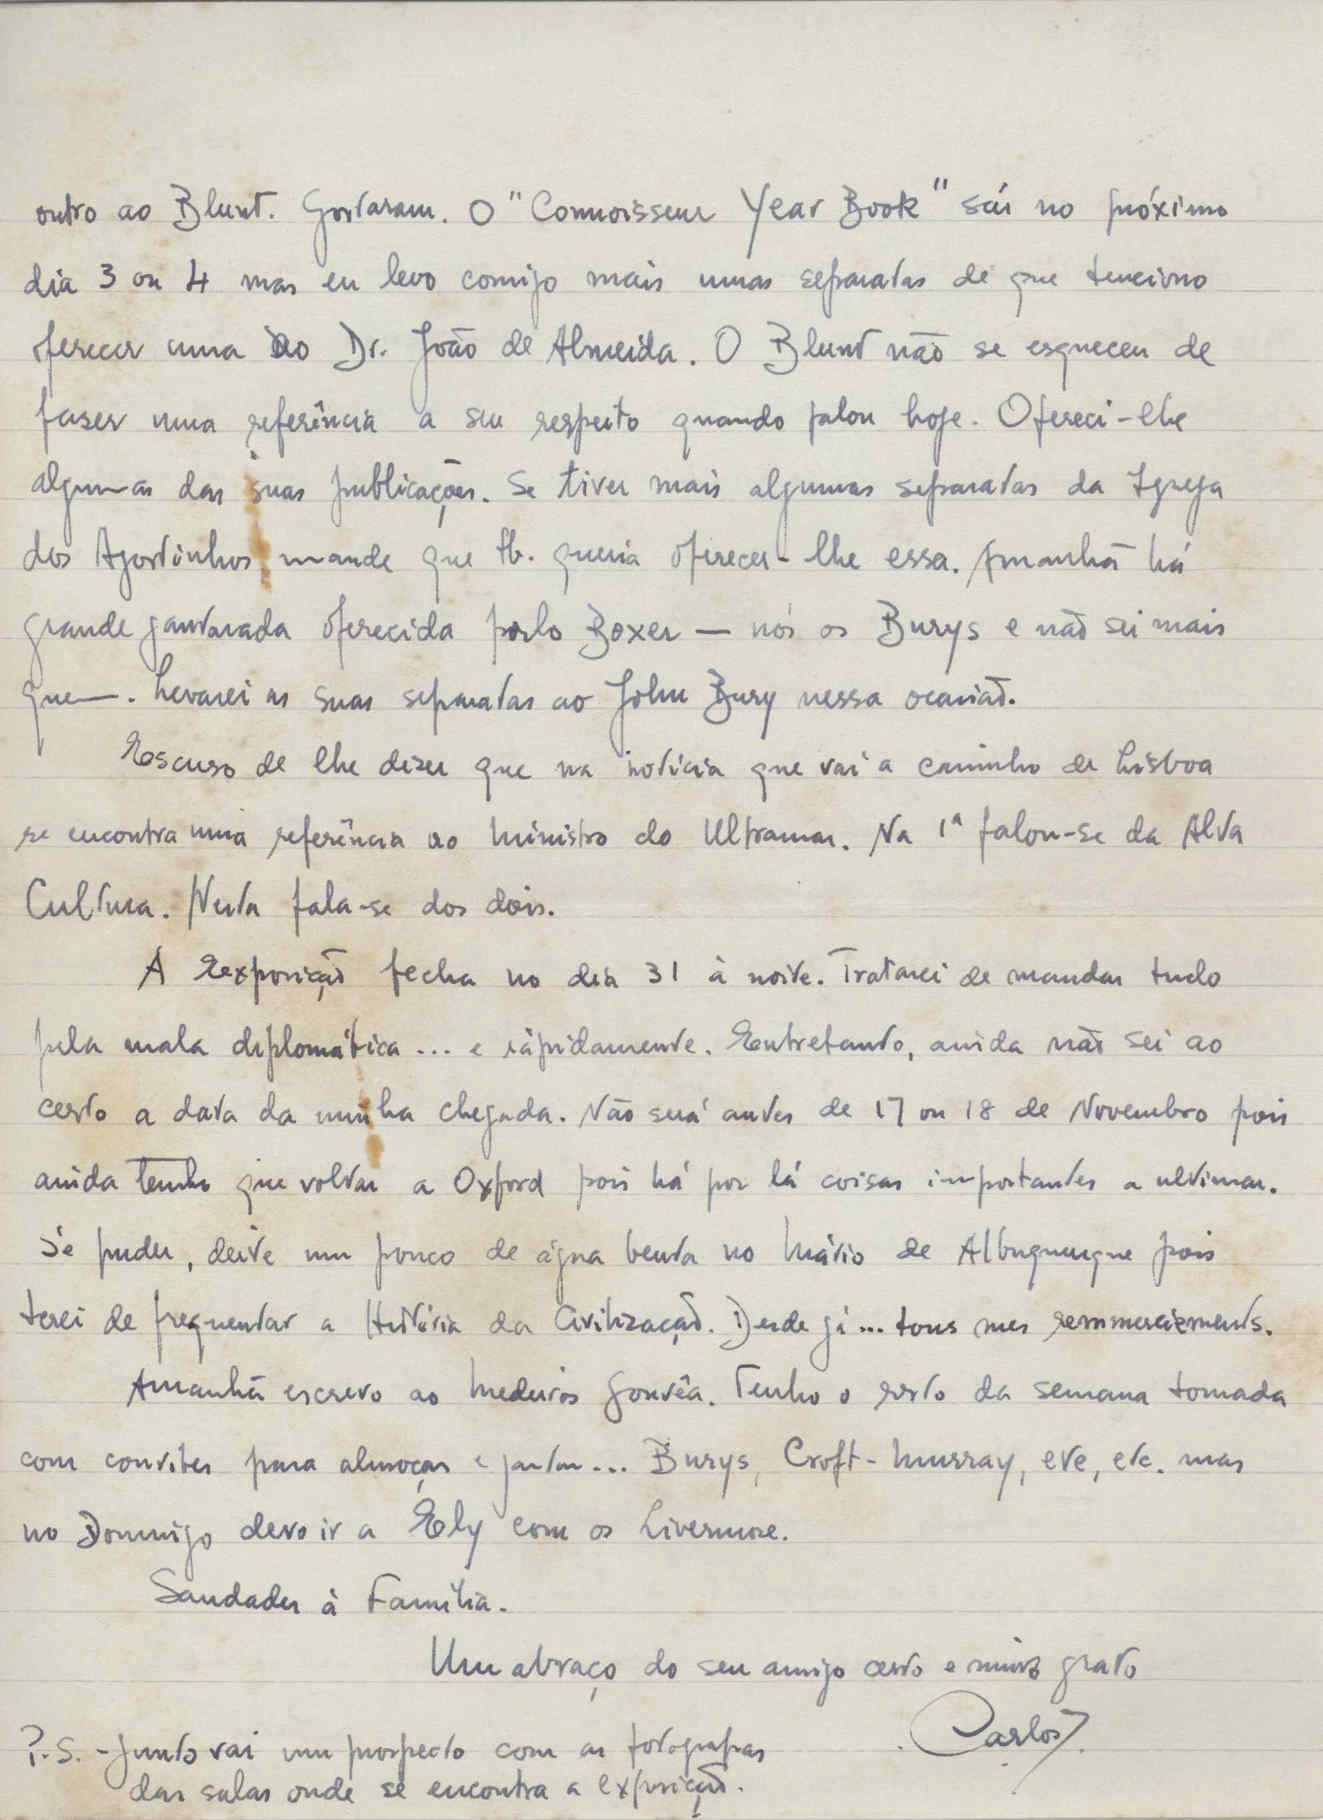 outro ao Blunt. Gostaram. O "Connoisseur Year Book" sai no próximo
dia 3 ou 4 mas eu levo comigo mais umas separatas de que tenciono
oferecer uma ao Dr. João de Almeida. O Blunt não se esqueceu de
fazer uma referência a seu respeito quando falou hoje. Ofereci-lhe
algumas das suas publicações. Se tiver mais algumas separatas da Igreja
dos Agostinhos mande que tb. queria oferecer-lhe essa. Amanhã há
grande jantarada oferecida pelo Boxer — nós os Burys e não sei mais
quem. Levarei as suas separatas ao John Bury nessa ocasião.
Escuso de lhe dizer que na notícia que vai a caminho de Lisboa
se encontra uma referência ao Ministro do Ultramar. Na 1ª falou-se da Alta
Cultura. Nesta fala-se dos dois.
A Exposição fecha no dia 31 à noite. Tratarei de mandar tudo
pela mala diplomática ... e ràpidamente. Entretanto, ainda não sei ao
certo a data da minha chegada. Não será antes de 17 ou 18 de Novembro pois
ainda tenho que voltar a Oxford pois há por lá coisas importantes a ultimar.
Se puder, deite um pouco de água benta no Mário de Albuquerque pois
terei de frequentar a História da Civilização. Desde já ... tous mes remmerciements.
Amanhã escrevo ao Medeiros Gouvêa. Tenho o resto da semana tomada
com convites para almoçar e jantar ... Burys, Croft-Murray, etc, etc. mas
no Domingo devo ir a Ely com os Livermore.
Saudades à Família.
Um abraço do seu amigo certo e muito grato
Carlos
P.S. - Junto vai um prospecto com as fotografias
das salas onde se encontra a exposição.